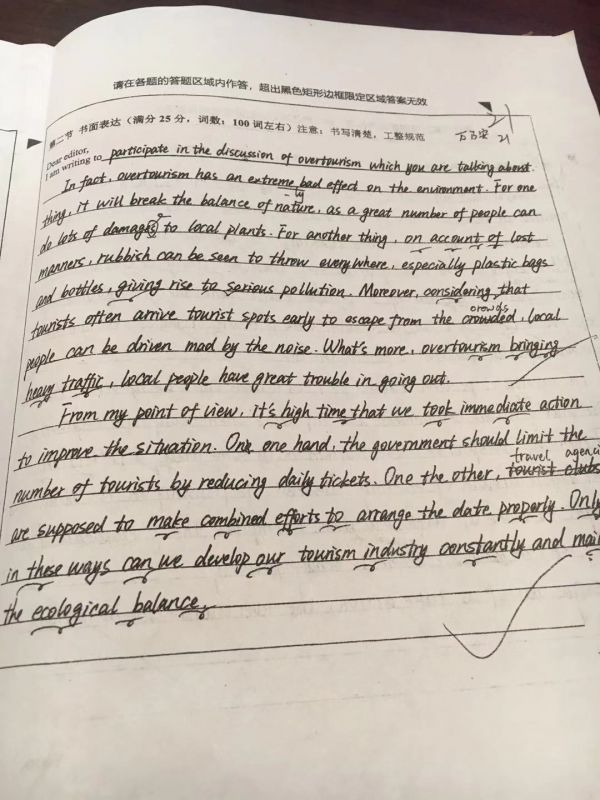 请在各题的答题区域内作答，超出黑色矩形边框限定区域答案无效
21
第二节 书面表达（满分 25 分，词数：100 词左右）注意：书写清楚，工整规范
21
Dear editor,
I am writing to participate in the discussion of overtourism which you are talking about.
In fact, overtourism has an extreme bad effect on the environment. For one
ly
thing, it will break the balance of nature, as a great number of people can
do lots of damages to local plants. For another thing, on account of lost
manners, rubbish can be seen to throw everywhere, especially plastic bags
and bottles, giving rise to serious pollution. Moreover, considering that
crowds
tourists often arrive tourist spots early to escape from the crowded, local
people can be driven mad by the noise. What's more, overtourism bringing
heavy traffic, local people have great trouble in going out.
From my point of view, it's high time that we took immediate action
to improve the situation. One one hand, the government should limit the
travel agenci
number of tourists by reducing daily tickets. One the other, tourist clubs
are supposed to make combined efforts to arrange the date properly. Only
in these ways can we develop our tourism industry constantly and main
the ecological balance.